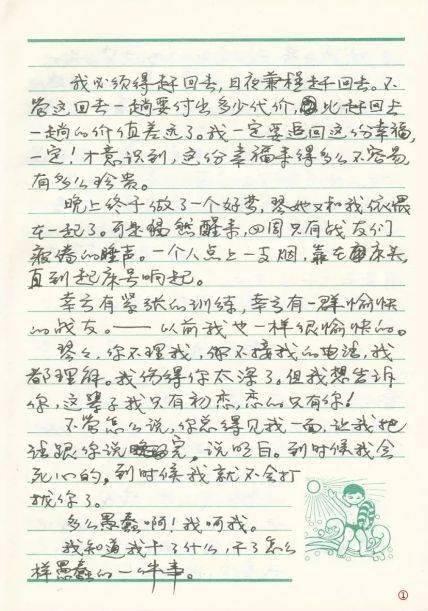 我必须得赶回去,日夜兼程赶回去。不
管这回去一趟要付出多少代价,比赶回去
一趟的价值差远了。我一定要追回这份幸福,
一定!才意识到,这份幸福来得多么不容易,
有多么珍贵。
晚上终于做了一个好梦,琴她又和我依偎
在一起了。可是忽然醒来,四周只有战友们
疲倦的睡声。一个人点上一支烟,靠在床头
直到起床号响起。
幸亏有紧张的训练,幸亏有一群愉快
的战友。——以前我也一样很愉快的。
琴々,你不理我,你不接我的电话,我
都理解。我伤得你太深了。但我想告诉
你,这辈子我只有初恋,恋的只有你!
不管怎么说,你总得见我一面,让我把
话跟你说完,说明白。到时候我会
死心的,到时候我就不会打
扰你了。
多么愚蠢啊!我呵我。
我知道我干了什么,干了怎么
样愚蠢的一件事。
①